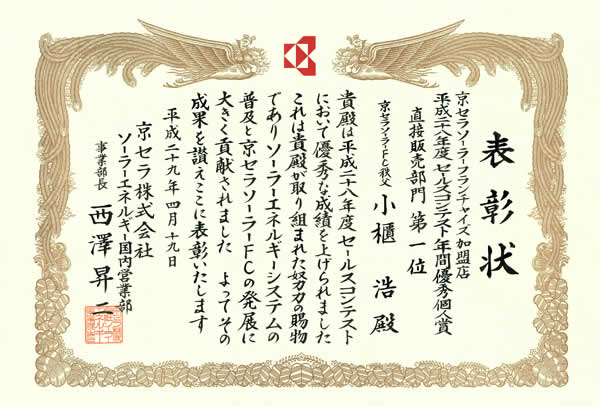 表彰状
京セラソーラーフランチャイズ加盟店
平成二十八年度 セールスコンテスト年間優秀個人賞
直接販売部門 第一位
京セラソーラーFC秩父
小櫃 浩 殿
貴殿は平成二十八年度セールスコンテスト
において優秀な成績を上げられました
これは貴殿が取り組まれた努力の賜物
でありソーラーエネルギーシステムの
普及と京セラソーラーFCの発展に
大きく貢献されました よってその
成果を讃えここに表彰いたします
平成二十九年四月十九日
京セラ株式会社
ソーラーエネルギー国内営業部
事業部長 西澤昇二